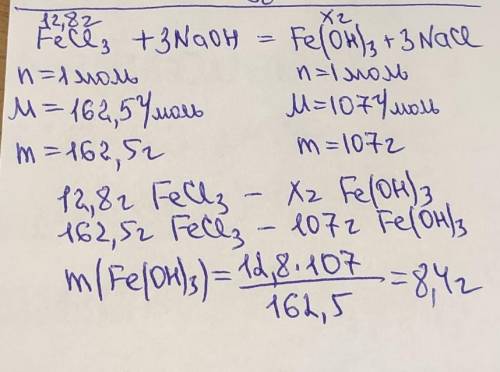 12,8г Xг
FeCl₃ + 3NaOH = Fe(OH)₃ + 3NaCl
n = 1 моль n = 1 моль
M = 162,5 г/моль M = 107 г/моль
m = 162,5г m = 107г
12,8г FeCl₃ – Xг Fe(OH)₃
162,5г FeCl₃ – 107г Fe(OH)₃
m(Fe(OH)₃) = 12,8·107 / 162,5 = 8,4г